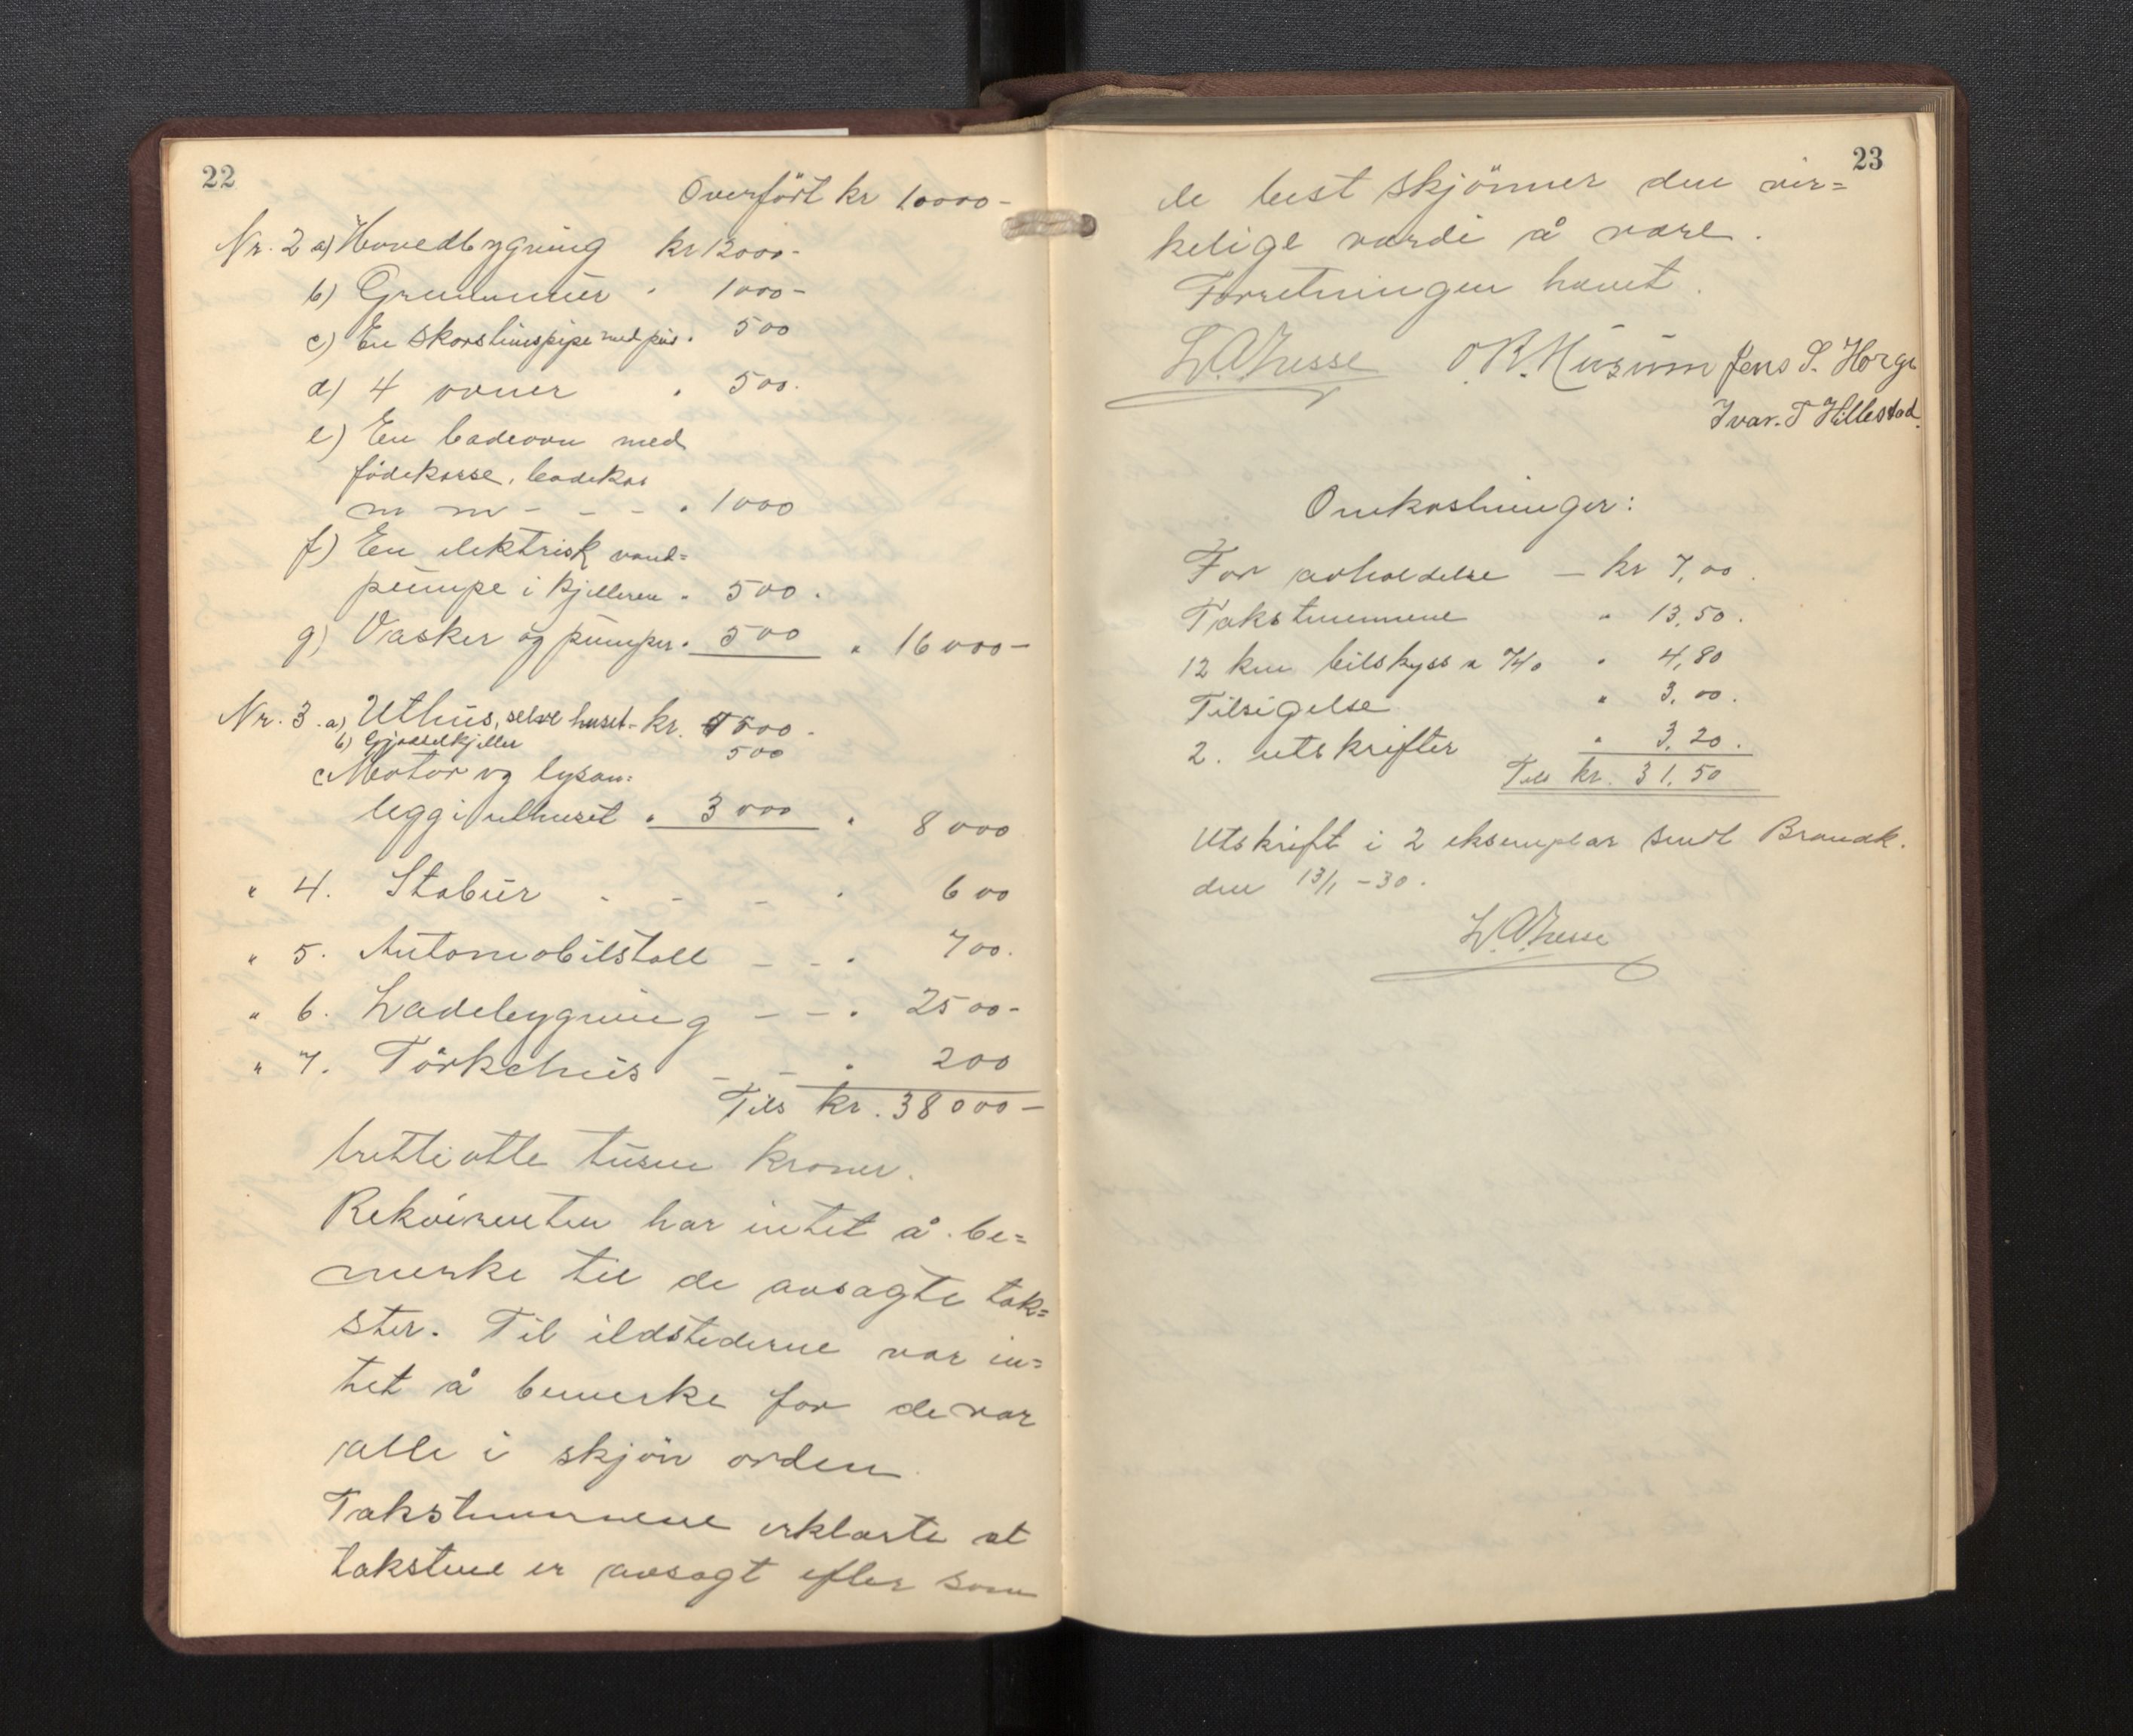 22
Overført kr 10000-
Nr. 2 a) Hovedbygning kr 12000-
b) Grunnmur " 1000-
c) En skorstinspipe med pus. 500
d) 4 ovner " 500.
e) En badeovn med
födekasse, badekar
m m - - - " 1000
f) En elektrisk vand=
pumpe i kjelleren " 500.
g) Vasker og pumper. 500 " 16000-
Nr. 3. a) Uthus, selve huset - kr. 4500-
b) Gjødselkjeller 500
c Motor og lysan=
legg i uthuset " 3000 " 8000
" 4. Stabur - - - " 600
" 5. Automobilstall - - " 700.
" 6. Ladebygning - - " 2500-
" 7. Törkehus - - " 200
Tils kr. 38000-
trettiotte tusen kroner.
Rekvirenten har intet å be=
merke til de avsagte tak=
ster. Til ildstederne var in=
tet å bemerke for de var
alle i skjön orden
Takstmennene erklærte at
takstene er avsagt efter som
23
de best skjönner den vir=
kelige værdi å være.
Forretningen hevet.
O. R. Müsüm Jens S. Horge
Ivar. T Hillestad.
Omkostninger:
For avholdelse - kr 7,00.
Takstmennene " 13,50.
12 km bilskyss a 0/40 " 4,80
Tilsigelse " 3,00.
2. utskrifter " 3,20.
Tils kr. 31,50
Utskrift i 2 eksemplar sendt Brandk.
den 13/1 -30.